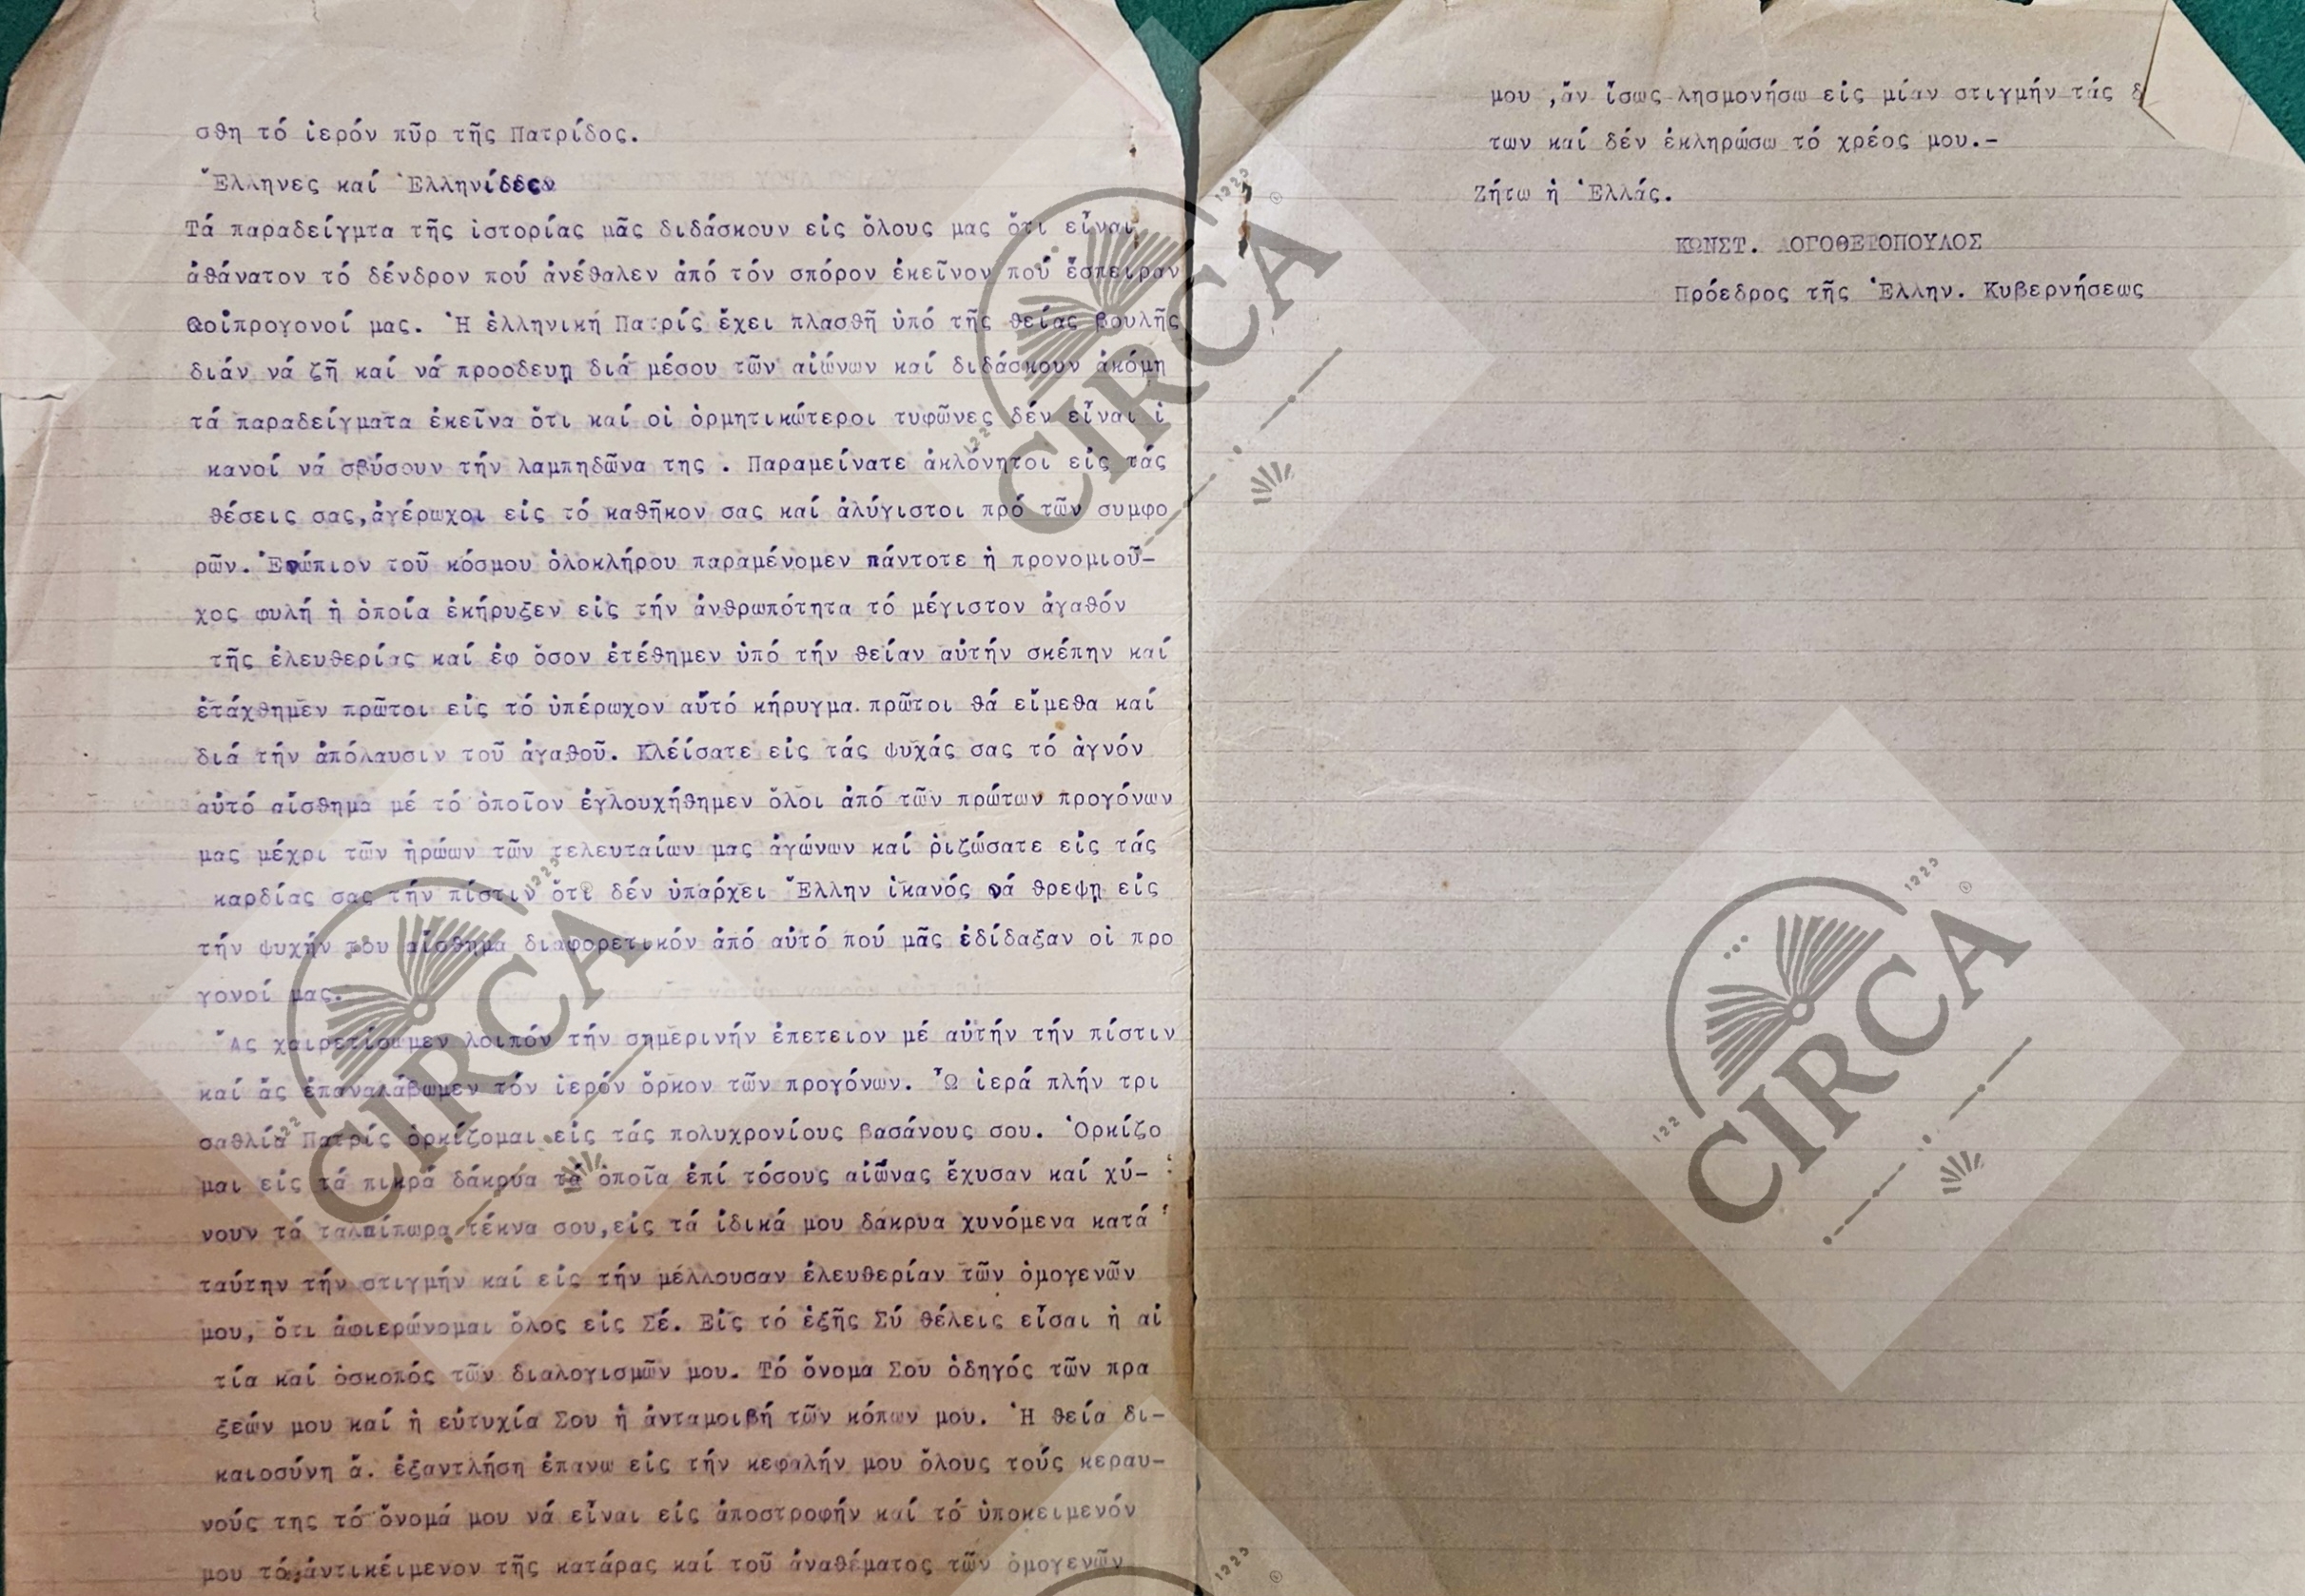 σθη τό ἱερόν πῦρ τῆς Πατρίδος.
Ἕλληνες καί Ἑλληνίδες
Τά παραδείγμτα τῆς ἱστορίας μᾶς διδάσκουν εἰς ὅλους μας ὅτι εἶναι
ἀθάνατον τό δένδρον πού ἀνέθαλεν ἀπό τόν σπόρον ἐκεῖνον πού ἔσπειραν
οἱπρογονοί μας. Ἡ ἑλληνική Πατρίς ἔχει πλασθῆ ὑπό τῆς θείας βουλῆς
διάν νά ζῆ καί νά προοδευῃ διά μέσου τῶν αἰώνων καί διδάσκουν ἀκόμη
τά παραδείγματα ἐκεῖνα ὅτι καί οἱ ὁρμητικώτεροι τυφῶνες δέν εἶναι ἱ
κανοί νά σβύσουν τήν λαμπηδῶνα της . Παραμείνατε ἀκλόνητοι εἰς τάς
θέσεις σας,ἀγέρωχοι εἰς τό καθῆκον σας καί ἀλύγιστοι πρό τῶν συμφο
ρῶν. Ἐνώπιον τοῦ κόσμου ὁλοκλήρου παραμένομεν πάντοτε ἡ προνομιοῦ-
χος φυλή ἡ ὁποία ἐκήρυξεν εἰς τήν ἀνθρωπότητα τό μέγιστον ἀγαθόν
τῆς ἐλευθερίας καί ἐφ ὅσον ἐτέθημεν ὑπό τήν θείαν αὐτήν σκέπην καί
ἐτάχθημεν πρῶτοι εἰς τό ὑπέρωχον αὔτό κήρυγμα. πρῶτοι θά εἴμεθα καί
διά τήν ἀπόλαυσιν τοῦ ἀγαθοῦ. Κλέίσατε εἰς τάς ψυχάς σας τό ἁγνόν
αὐτό αἴσθημα μέ τό ὁποῖον ἐγλουχήθημεν ὅλοι ἀπό τῶν πρώτων προγόνων
μας μέχρι τῶν ἡρώων τῶν τελευταίων μας ἀγώνων καί ῥιζώσατε εἰς τάς
καρδίας σας τήν πίστιν ὅτι δέν ὑπάρχει Ἕλλην ἱκανός νά θρεψῃ εἰς
τήν ψυχήν του αἴσθημα διαφορετικόν ἀπό αὐτό πού μᾶς ἐδίδαξαν οἱ προ
γονοί μας.
Ἄς χαιρετίσωμεν λοιπόν τήν σημερινήν ἐπετειον μέ αὐτήν τήν πίστιν
καί ἄς ἐπαναλάβωμεν τόν ἱερόν ὅρκον τῶν προγόνων. Ὦ ἱερά πλήν τρι
σαθλία Πατρίς ὁρκίζομαι εἰς τάς πολυχρονίους βασάνους σου. Ὁρκίζο
μαι εἰς τά πικρά δάκρυα τά ὁποῖα ἐπί τόσους αἰῶνας ἔχυσαν καί χύ-
νουν τά ταλαίπωρα τέκνα σου,εἰς τά ἰδικά μου δάκρυα χυνόμενα κατά
ταύτην τήν στιγμήν καί εἰς τήν μέλλουσαν ἐλευθερίαν τῶν ὁμογενῶν
μου, ὅτι ἀφιερώνομαι ὅλος εἰς Σέ. Εἰς τό ἑξῆς Σύ θέλεις εἶσαι ἡ αἰ
τία καί ὁσκοπός τῶν διαλογισμῶν μου. Τό ὄνομα Σου ὁδηγός τῶν πρα
ξεών μου καί ἡ εὐτυχία Σου ἡ ἀνταμοιβή τῶν κόπων μου. Ἡ θεία δι-
καιοσύνη ἄ. ἐξαντλήση ἐπανω εἰς τήν κεφαλήν μου ὅλους τούς κεραυ-
νούς της τό ὄνομά μου νά εἶναι εἰς ἀποστροφήν καί τό ὑποκειμενόν
μου τό ἀντικέιμενον τῆς κατάρας καί τοῦ ἀναθέματος τῶν ὁμογενῶν
μου ,ἄν ἴσως λησμονήσω εἰς μίαν στιγμήν τάς δ
των καί δέν ἐκληρώσω τό χρέος μου.-
Ζήτω ἡ Ἑλλάς.
ΚΩΝΣΤ. ΛΟΓΟΘΕΤΟΠΟΥΛΟΣ
Πρόεδρος τῆς Ἑλλην. Κυβερνήσεως
CIRCA
CIRCA
CIRCA